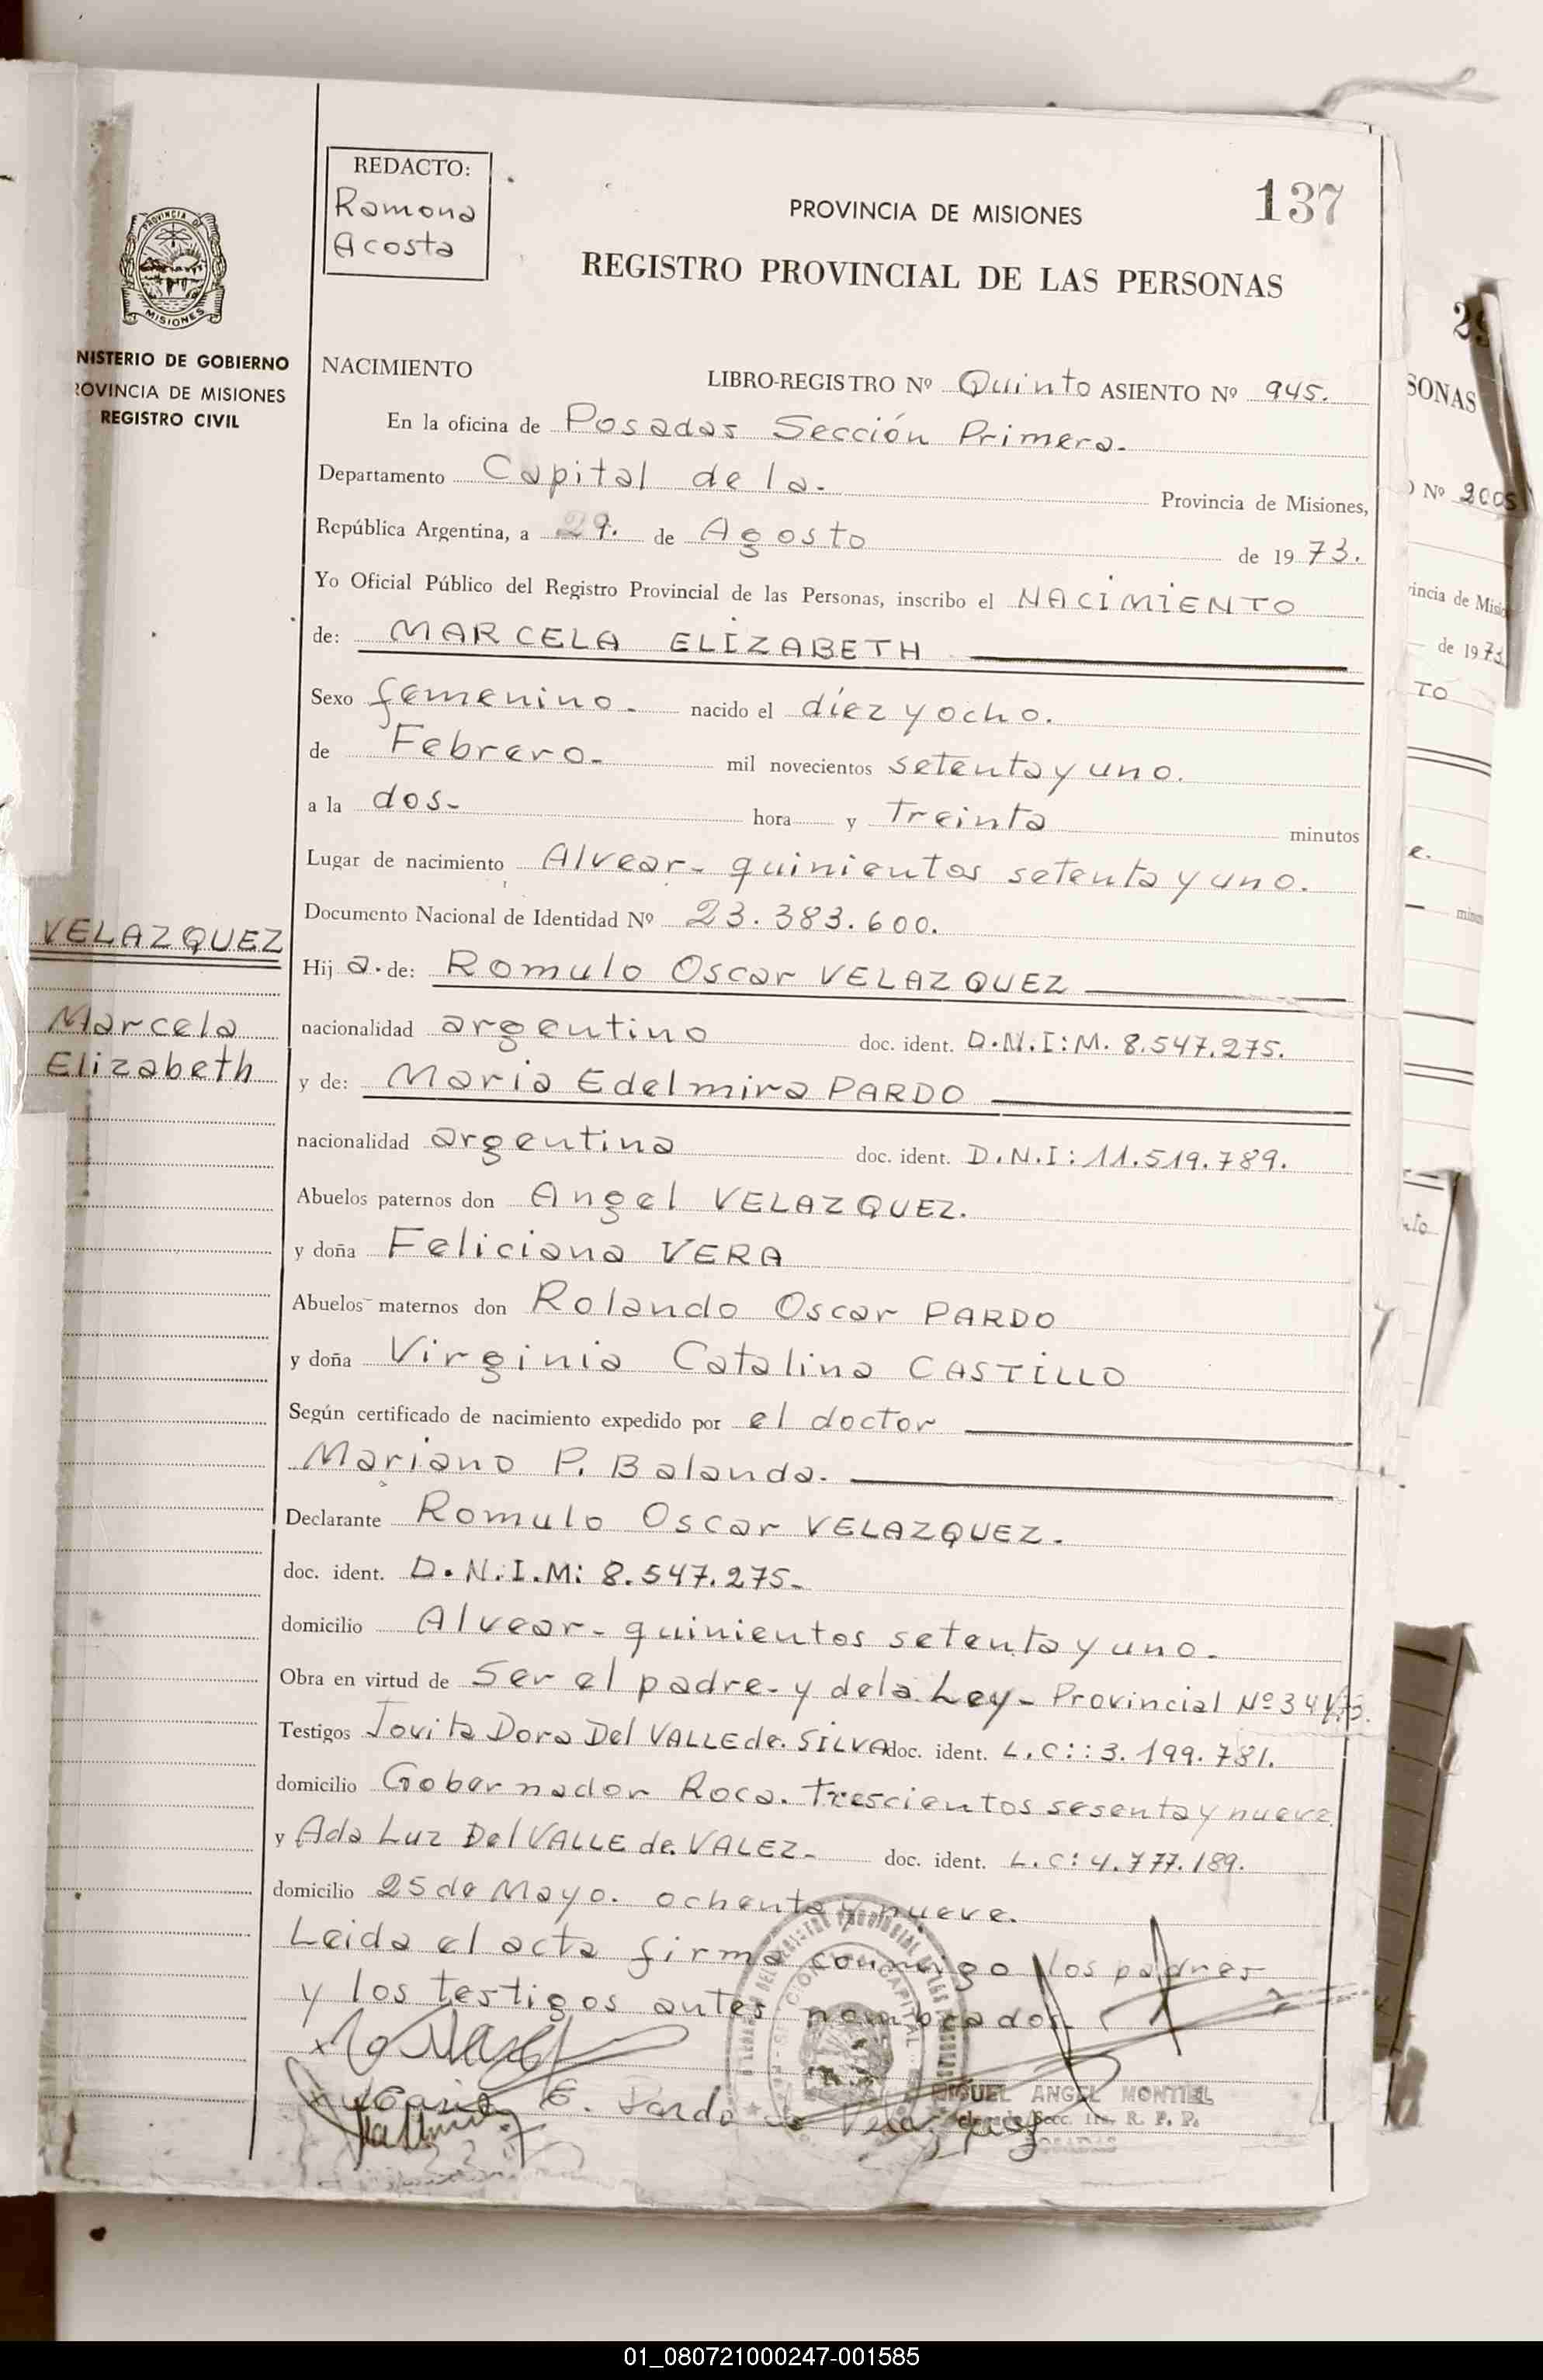 REDACTO:
Ramona
Acosta
137
PROVINCIA DE MISIONES
REGISTRO PROVINCIAL DE LAS PERSONAS
MISIONES
NISTERIO DE GOBIERNO
ROVINCIA DE MISIONES
REGISTRO CIVIL
NACIMIENTO LIBRO-REGISTRO Nº Quinto ASIENTO Nº 945.
En la oficina de Posadas Sección Primera.
Departamento Capital de la. Provincia de Misiones,
República Argentina, a 29. de Agosto de 1973.
Yo Oficial Público del Registro Provincial de las Personas, inscribo el NACIMIENTO
de: MARCELA ELIZABETH
Sexo femenino. nacido el díez y ocho.
de Febrero. mil novecientos setenta y uno.
a la dos. hora y treinta minutos
Lugar de nacimiento Alvear. quinientos setenta y uno.
Documento Nacional de Identidad Nº 23.383.600.
VELAZQUEZ
Marcela
Elizabeth
Hija. de: Romulo Oscar VELAZQUEZ
nacionalidad argentino doc. ident. D.N.I:M. 8.547.275.
y de: Maria Edelmira PARDO
nacionalidad argentina doc. ident. D.N.I: 11.519.789.
Abuelos paternos don Angel VELAZQUEZ.
y doña Feliciana VERA
Abuelos maternos don Rolando Oscar PARDO
y doña Virginia Catalina CASTILLO
Según certificado de nacimiento expedido por el doctor
Mariano P. Balanda.
Declarante Romulo Oscar VELAZQUEZ.
doc. ident. D.N.I.M: 8.547.275.
domicilio Alvear. quinientos setenta y uno.
Obra en virtud de Ser el padre. y dela Ley. Provincial Nº
Testigos Jovita Dora Del VALLE de. SILVA doc. ident. L.C:: 3.199.781.
domicilio Gobernador Roca. Trescientos sesenta y nueve
y Ada Luz Del VALLE de. VALEZ. doc. ident. L.C: 4.777.189.
domicilio 25 de Mayo. ochenta y nueve.
Leida el acta firma conmigo los padres
y los testigos antes nombrados.
E. Pardo de
MIGUEL ANGEL MONTIEL
Secc. 1ra. R. P. P.
POSADAS
SONAS
Nº 2005
incia de Misio
de 1973
TO
01_080721000247-001585